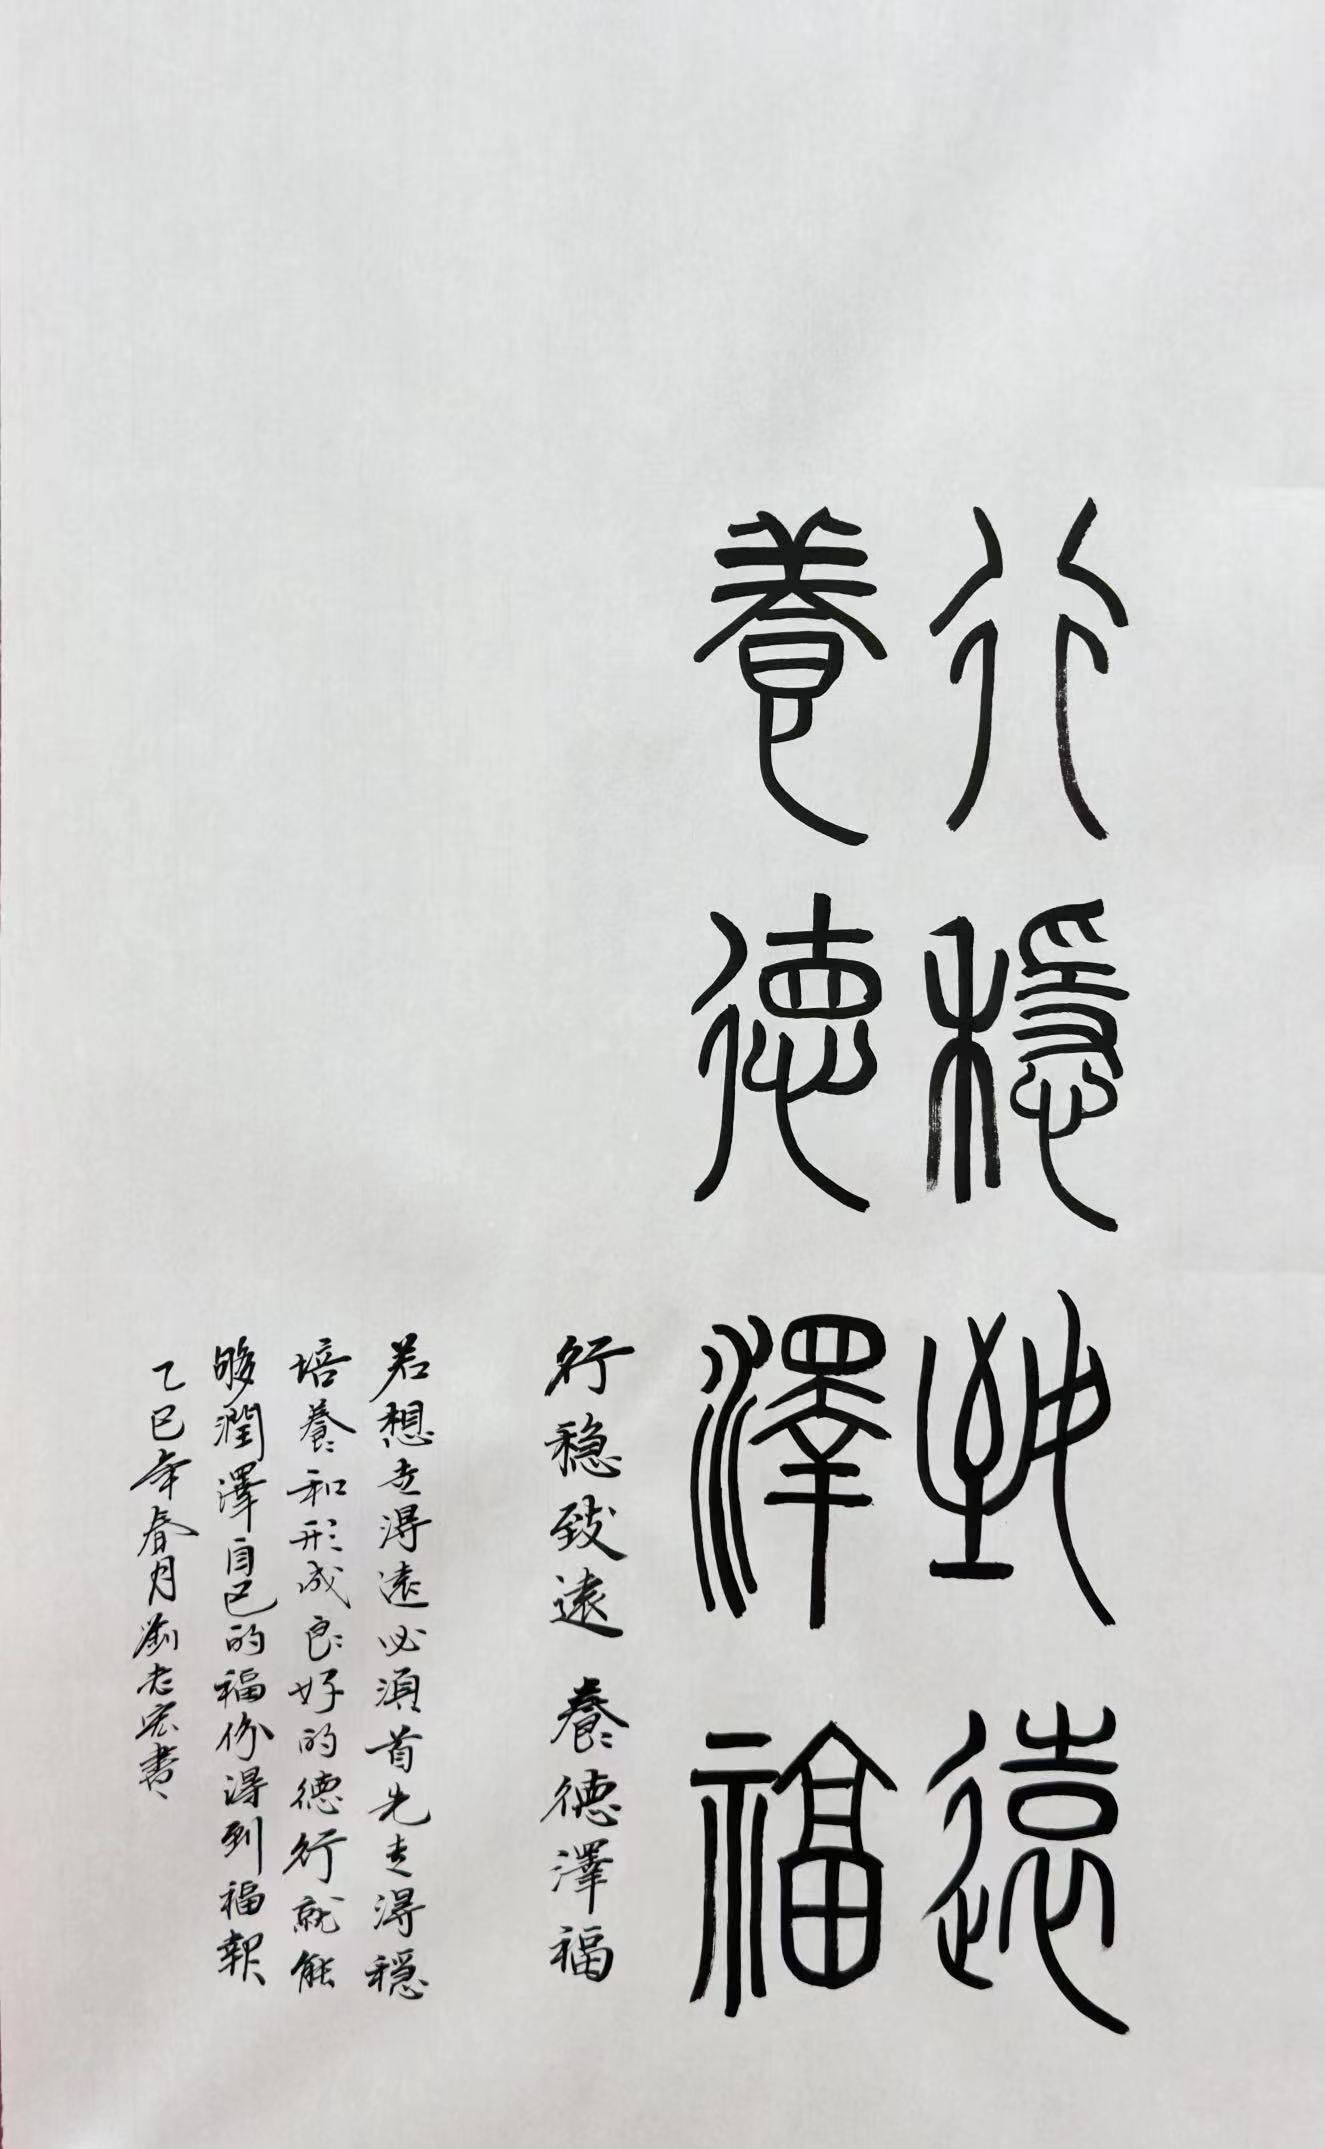 行穩致遠
養德澤福
行稳致遠 養德澤福
若想走得遠必須首先走得穩
培養和形成良好的德行就能
够潤澤自己的福份得到福報
乙巳年春月劉志宏書